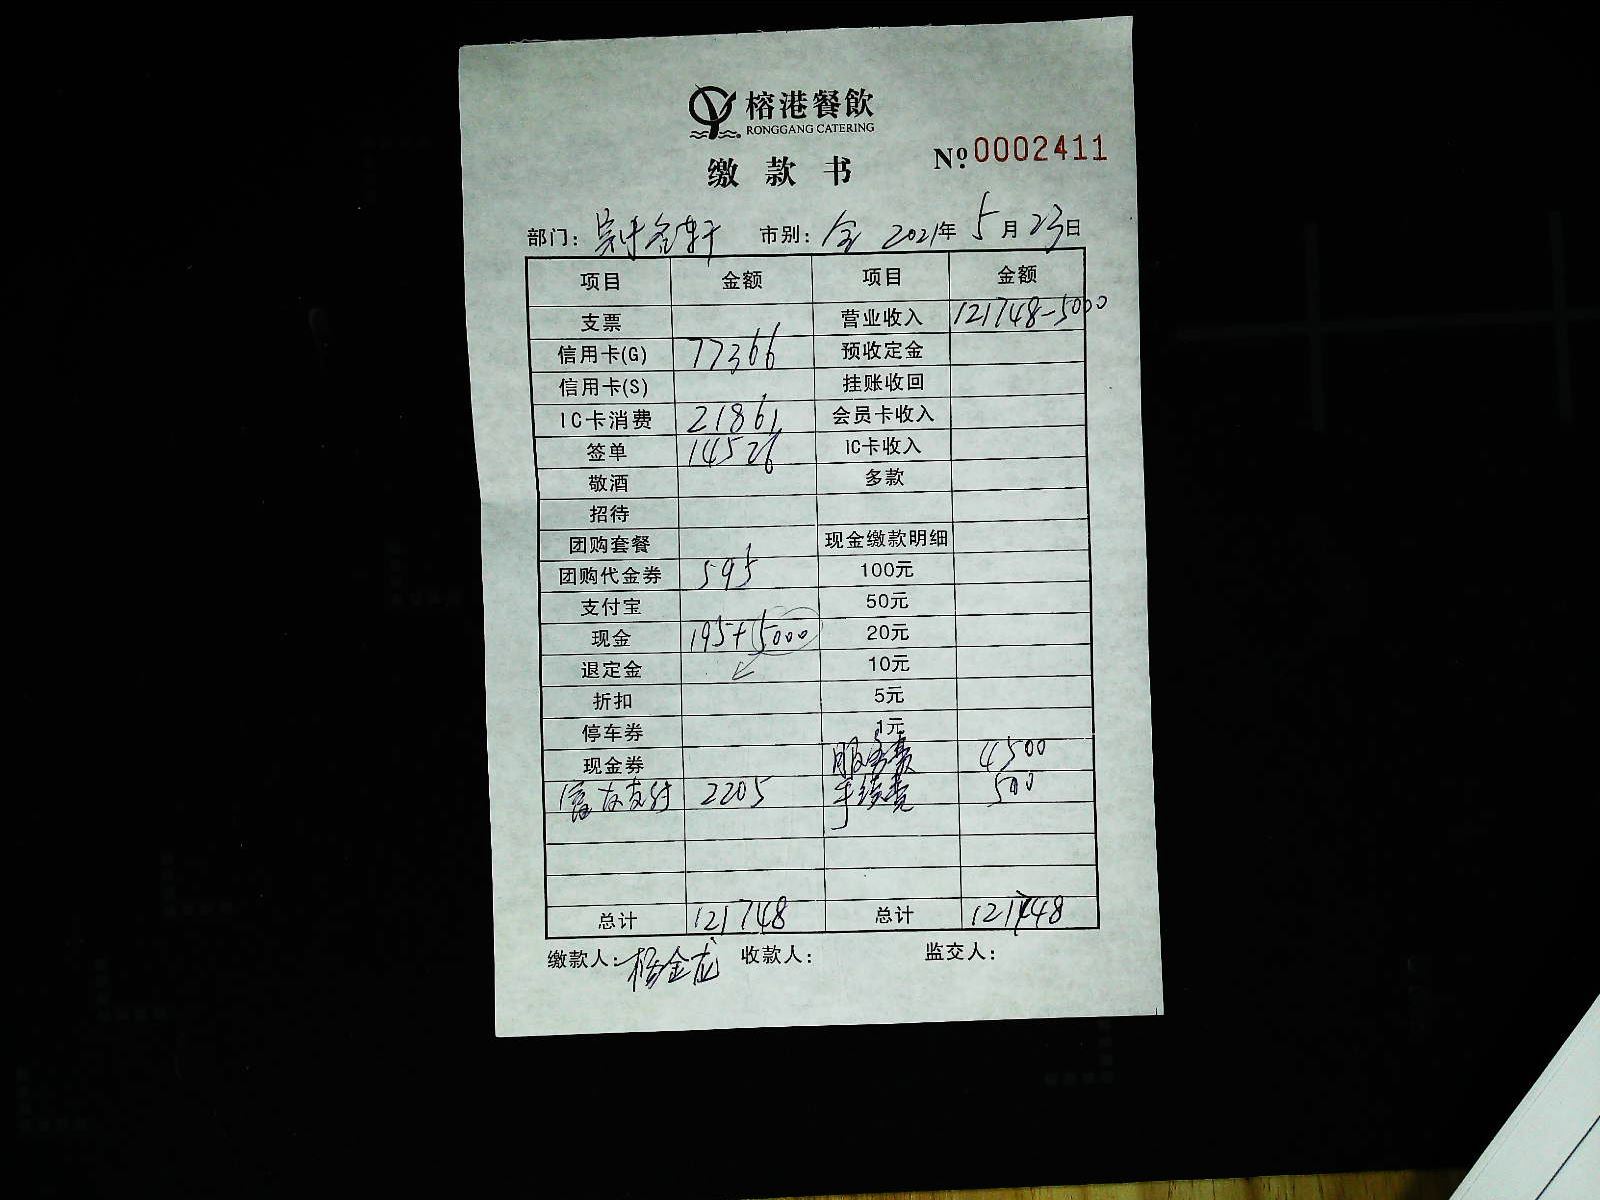 榕港餐飲
RONGGANG CATERING
缴款书 № 0002411
部门： 市别：全 2021年 5月23日
项目 金额 项目 金额
支票 营业收入 121748-5000
信用卡(G) 77366 预收定金
信用卡(S) 挂账收回
IC卡消费 21861 会员卡收入
签单 14526 IC卡收入
敬酒 多款
招待
团购套餐 现金缴款明细
团购代金券 595 100元
支付宝 50元
现金 195+5000 20元
退定金 10元
折扣 5元
停车券 1元
现金券 服务费 4500
富友支付 2205 手续费 500
总计 121748 总计 121748
缴款人：杨金龙 收款人： 监交人：